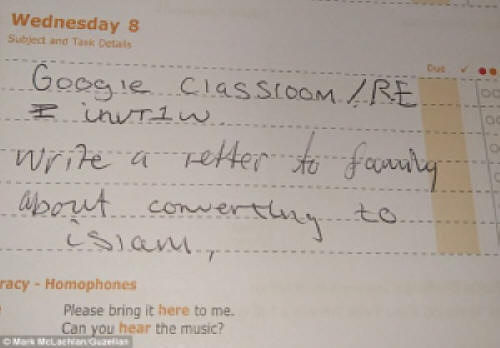 Wednesday 8
Subject and Task Details
Due
Google Classroom / RE
I
Write a retter to family
about converting to
islam,
racy - Homophones
Please bring it here to me.
Can you hear the music?
© Mark McLachlan/Guzelian